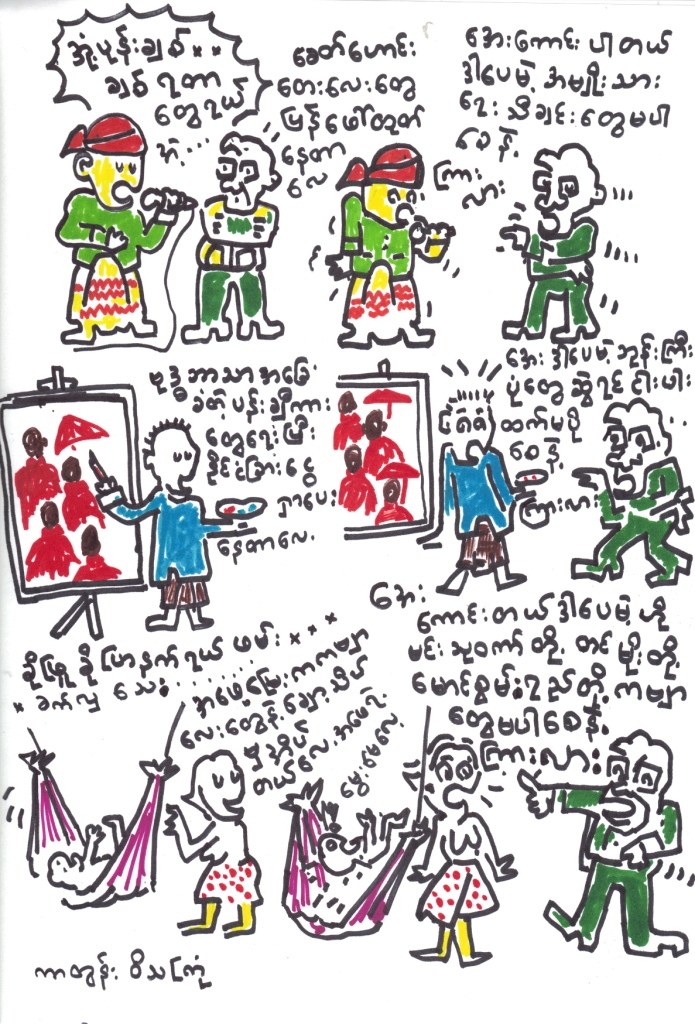 အုံးပုန်းချစ် × ×
ချစ် ရတာ
တွေရယ်
အဲ့....
ခေတ်ဟောင်း
တေးလေးတွေ
ပြန်ဖော်ထုတ်
နေတာ
လေ
အေးကောင်းပါတယ်
ဒါပေမဲ့ အမျိုးသား
ရေး သီချင်းတွေမပါ
စေနဲ့
ကြား
လား
ဗုဒ္ဓဘာသာအခြေ
ခံတဲ့ ပန်းချီကား
တွေရေးပြီး
နိုင်ငံခြားငွေ
ရှာပေး
နေတာလေ.
အေးဒါပေမဲ့ဘုန်းကြီး
ပုံတွေဆွဲရင် ငါးပါး
ထက်မပို
စေနဲ့
ကြားလား
အမေ့မြေးကကဗျာ
လေးတွေနဲ့ချော့သိပ်
မှအိပ်
တယ်လေအမေရဲ့
မွှေးမေလေ့
အေး
ကောင်းတယ်ဒါပေမဲ့ဟို
မင်းသုဝဏ်တို့ တင်မိုးတို့
မောင်စွမ်းရည်တို့ကဗျာ
တွေမပါစေနဲ့
ကြားလား
ကာတွန်း ဝိသကြုံ